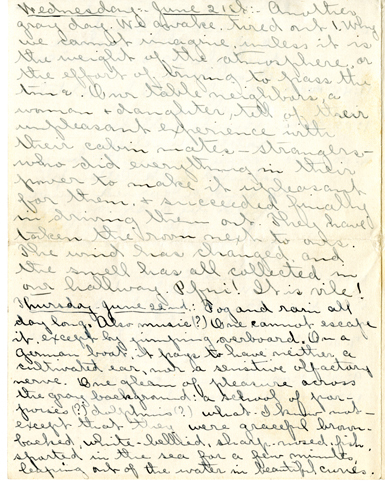 Wednesday. June 21st:- Another
gray day. We awake tired out! Why
we cannot imagine, unless it is
the weight of the atmosphere, or
the effort of trying to pass the
time. Our table neighbors, a
woman + daughter, tell of their
unpleasant experience with
their cabin mates - strangers -
who did everything in their
power to make it unpleasant
for them, + succeeded finally
in driving them out. They have
taken the room next to ours.
The wind has changed and
the smell has all collected in
our hallway. Pfui! It is vile!
Thursday June 22nd: Fog and rain all
day long. Also music(?) One cannot escape
it, except by jumping overboard. On a
german boat, it pays to have neither a
cultivated ear, nor a sensitive olfactory
nerve. One gleam of pleasure across
the gray background: a school of por-
poises(?) dolphins(?) what I know not -
except that they were graceful brown-
backed, white-bellied, sharp-nosed fish,
sported in the sea for a few minutes,
leaping out of the water in beautiful curves.